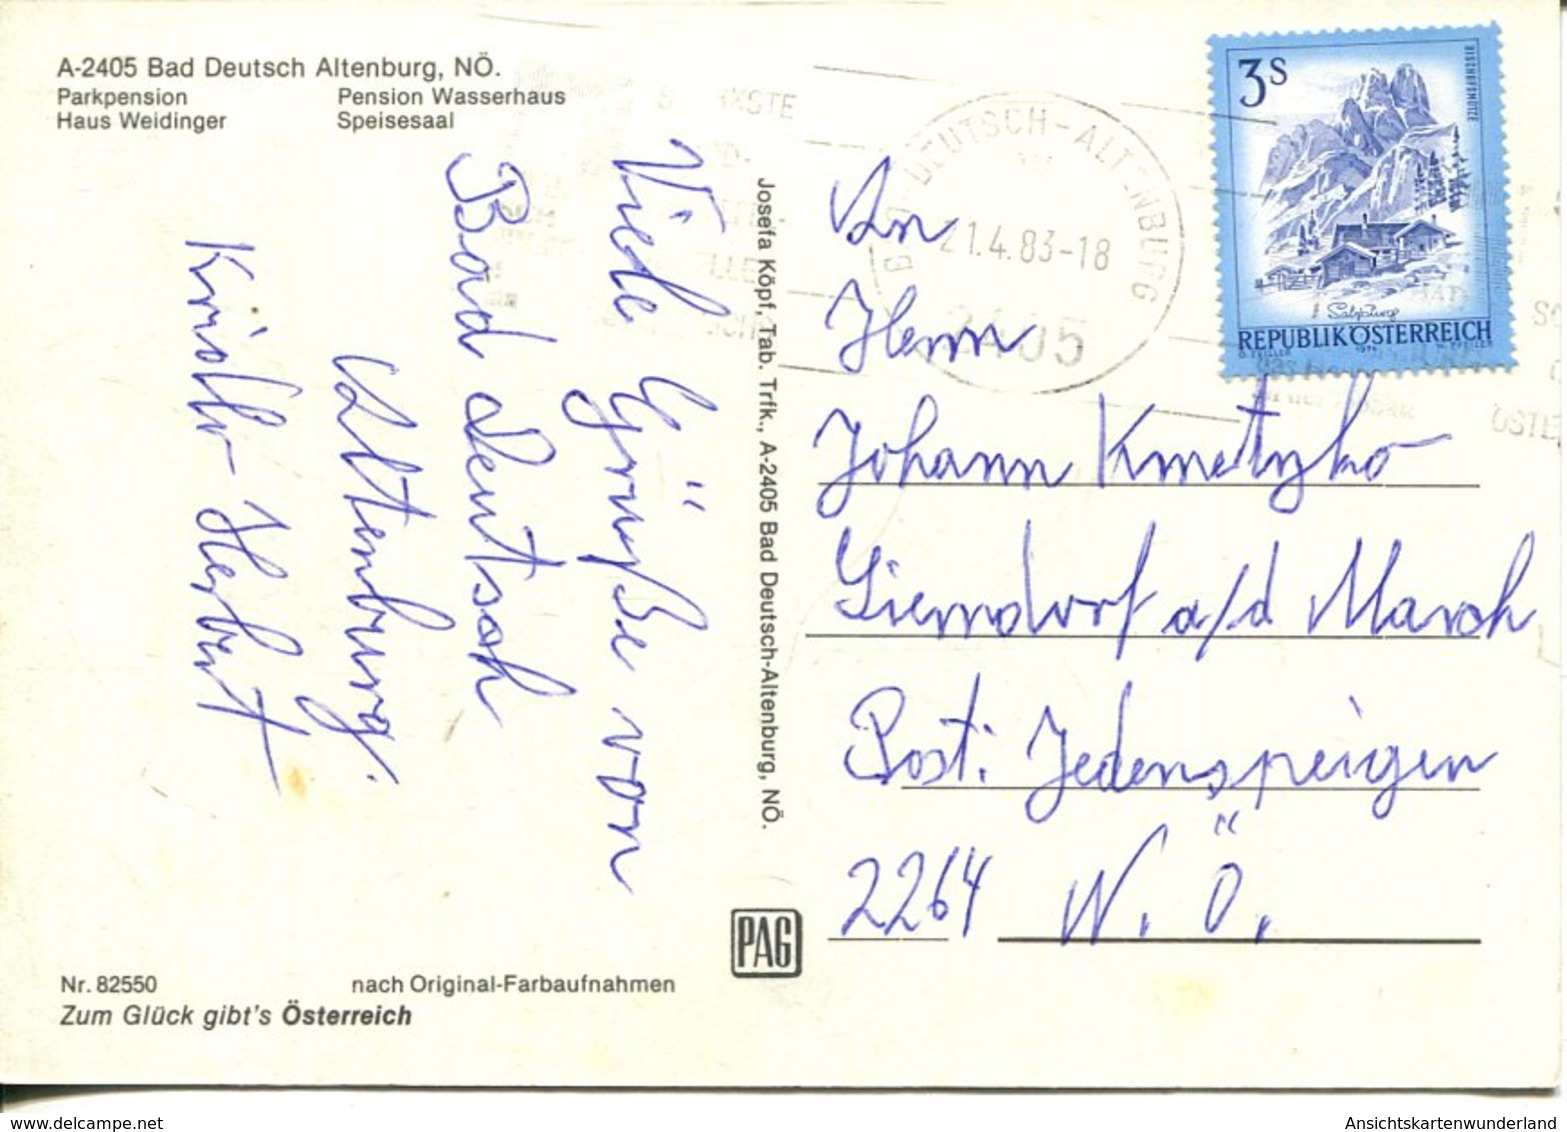 A-2405 Bad Deutsch Altenburg, NÖ.
Parkpension Pension Wasserhaus
Haus Weidinger Speisesaal
Viele Grüße von
Bad Deutsch
Altenburg.
Herbert
Josefa Köpf, Tab. Trfk., A-2405 Bad Deutsch-Altenburg, NÖ.
PAG
Nr. 82550 nach Original-Farbaufnahmen
Zum Glück gibt's Österreich
DEUTSCH-ALTENBURG
21.4.83-18
2405
3S
BISCHOFSMÜTZE
Salzburg
REPUBLIK ÖSTERREICH
An
Herrn
Johann Kmetyko
Sierndorf a/d March
Post: Jedenspeigen
2264 N. Ö.
AnsichtskartenWunderland / Other